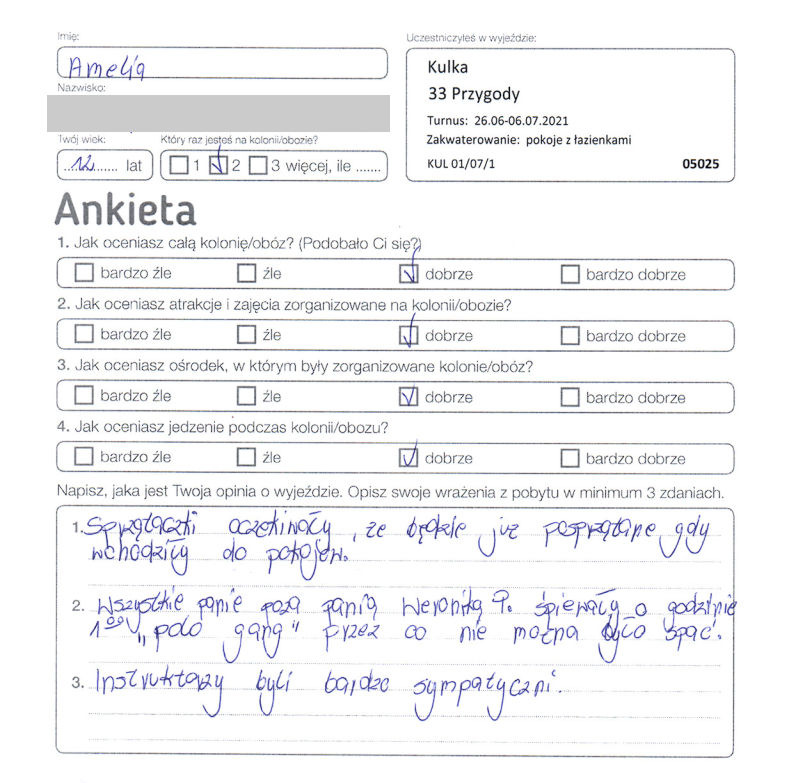 Imię:
Uczestniczyłeś w wyjeździe:
Amelia
Kulka
33 Przygody
Nazwisko:
Turnus: 26.06-06.07.2021
Zakwaterowanie: pokoje z łazienkami
KUL 01/07/1 05025
Twój wiek:
Który raz jesteś na kolonii/obozie?
12 lat
1 2 3 więcej, ile .......
Ankieta
1. Jak oceniasz całą kolonię/obóz? (Podobało Ci się?)
bardzo źle źle dobrze bardzo dobrze
2. Jak oceniasz atrakcje i zajęcia zorganizowane na kolonii/obozie?
bardzo źle źle dobrze bardzo dobrze
3. Jak oceniasz ośrodek, w którym były zorganizowane kolonie/obóz?
bardzo źle źle dobrze bardzo dobrze
4. Jak oceniasz jedzenie podczas kolonii/obozu?
bardzo źle źle dobrze bardzo dobrze
Napisz, jaka jest Twoja opinia o wyjeździe. Opisz swoje wrażenia z pobytu w minimum 3 zdaniach.
1. Sprzątaczki oczekiwały, że będzie już posprzątane gdy
wchodziły do pokojów.
2. Wszystkie panie poza panią Weroniką P. śpiewały o godzinie
1⁰⁰ „polo gang" przez co nie można było spać.
3. Instruktarzy byli bardzo sympatyczni.